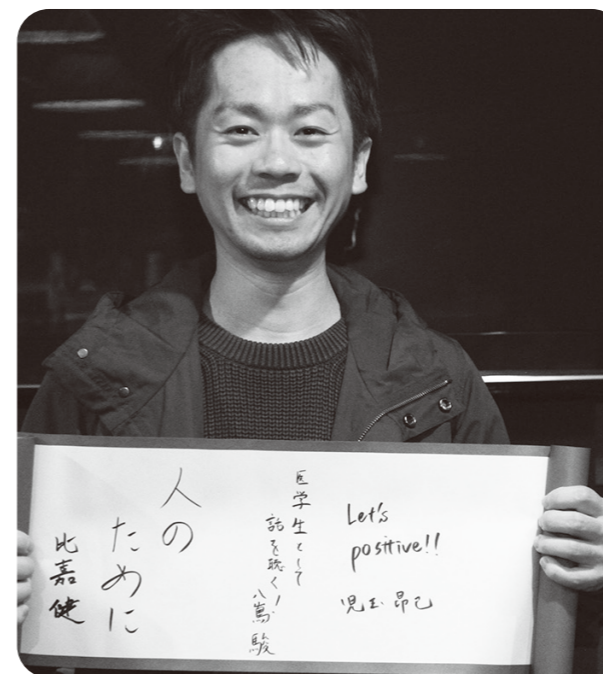 Let's
positive!!
児玉 昂己
医学生として
話を聴く!
八嶌 駿
人の
ために
比嘉 健